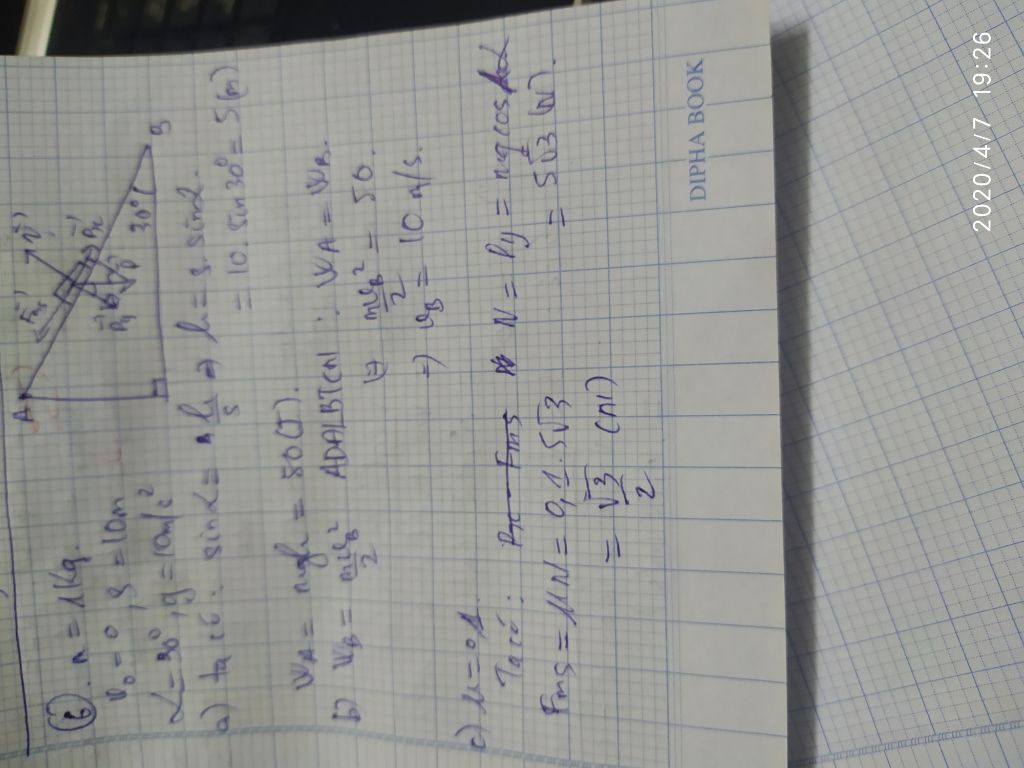 ⑥. m = 1kg.
v₀ = 0, s = 10m
α = 30°, g = 10m/s²
A
Fms
N
Px
Py
P
30°
B
a) ta có: sinα = h/s ⇒ h = s.sinα.
= 10.sin30° = 5(m)
WA = mgh = 50(J).
b) WB = mvB²/2 ADĐLBTCN: WA = WB.
⇔ mvB²/2 = 50.
⇒ vB = 10 m/s.
c) μ = 0,1
Ta có: N = Py = mg cosα
= 5√3 (N).
Fms = μN = 0,1.5√3
= √3/2 (N)
DIPHA BOOK
2020/4/7 19:26